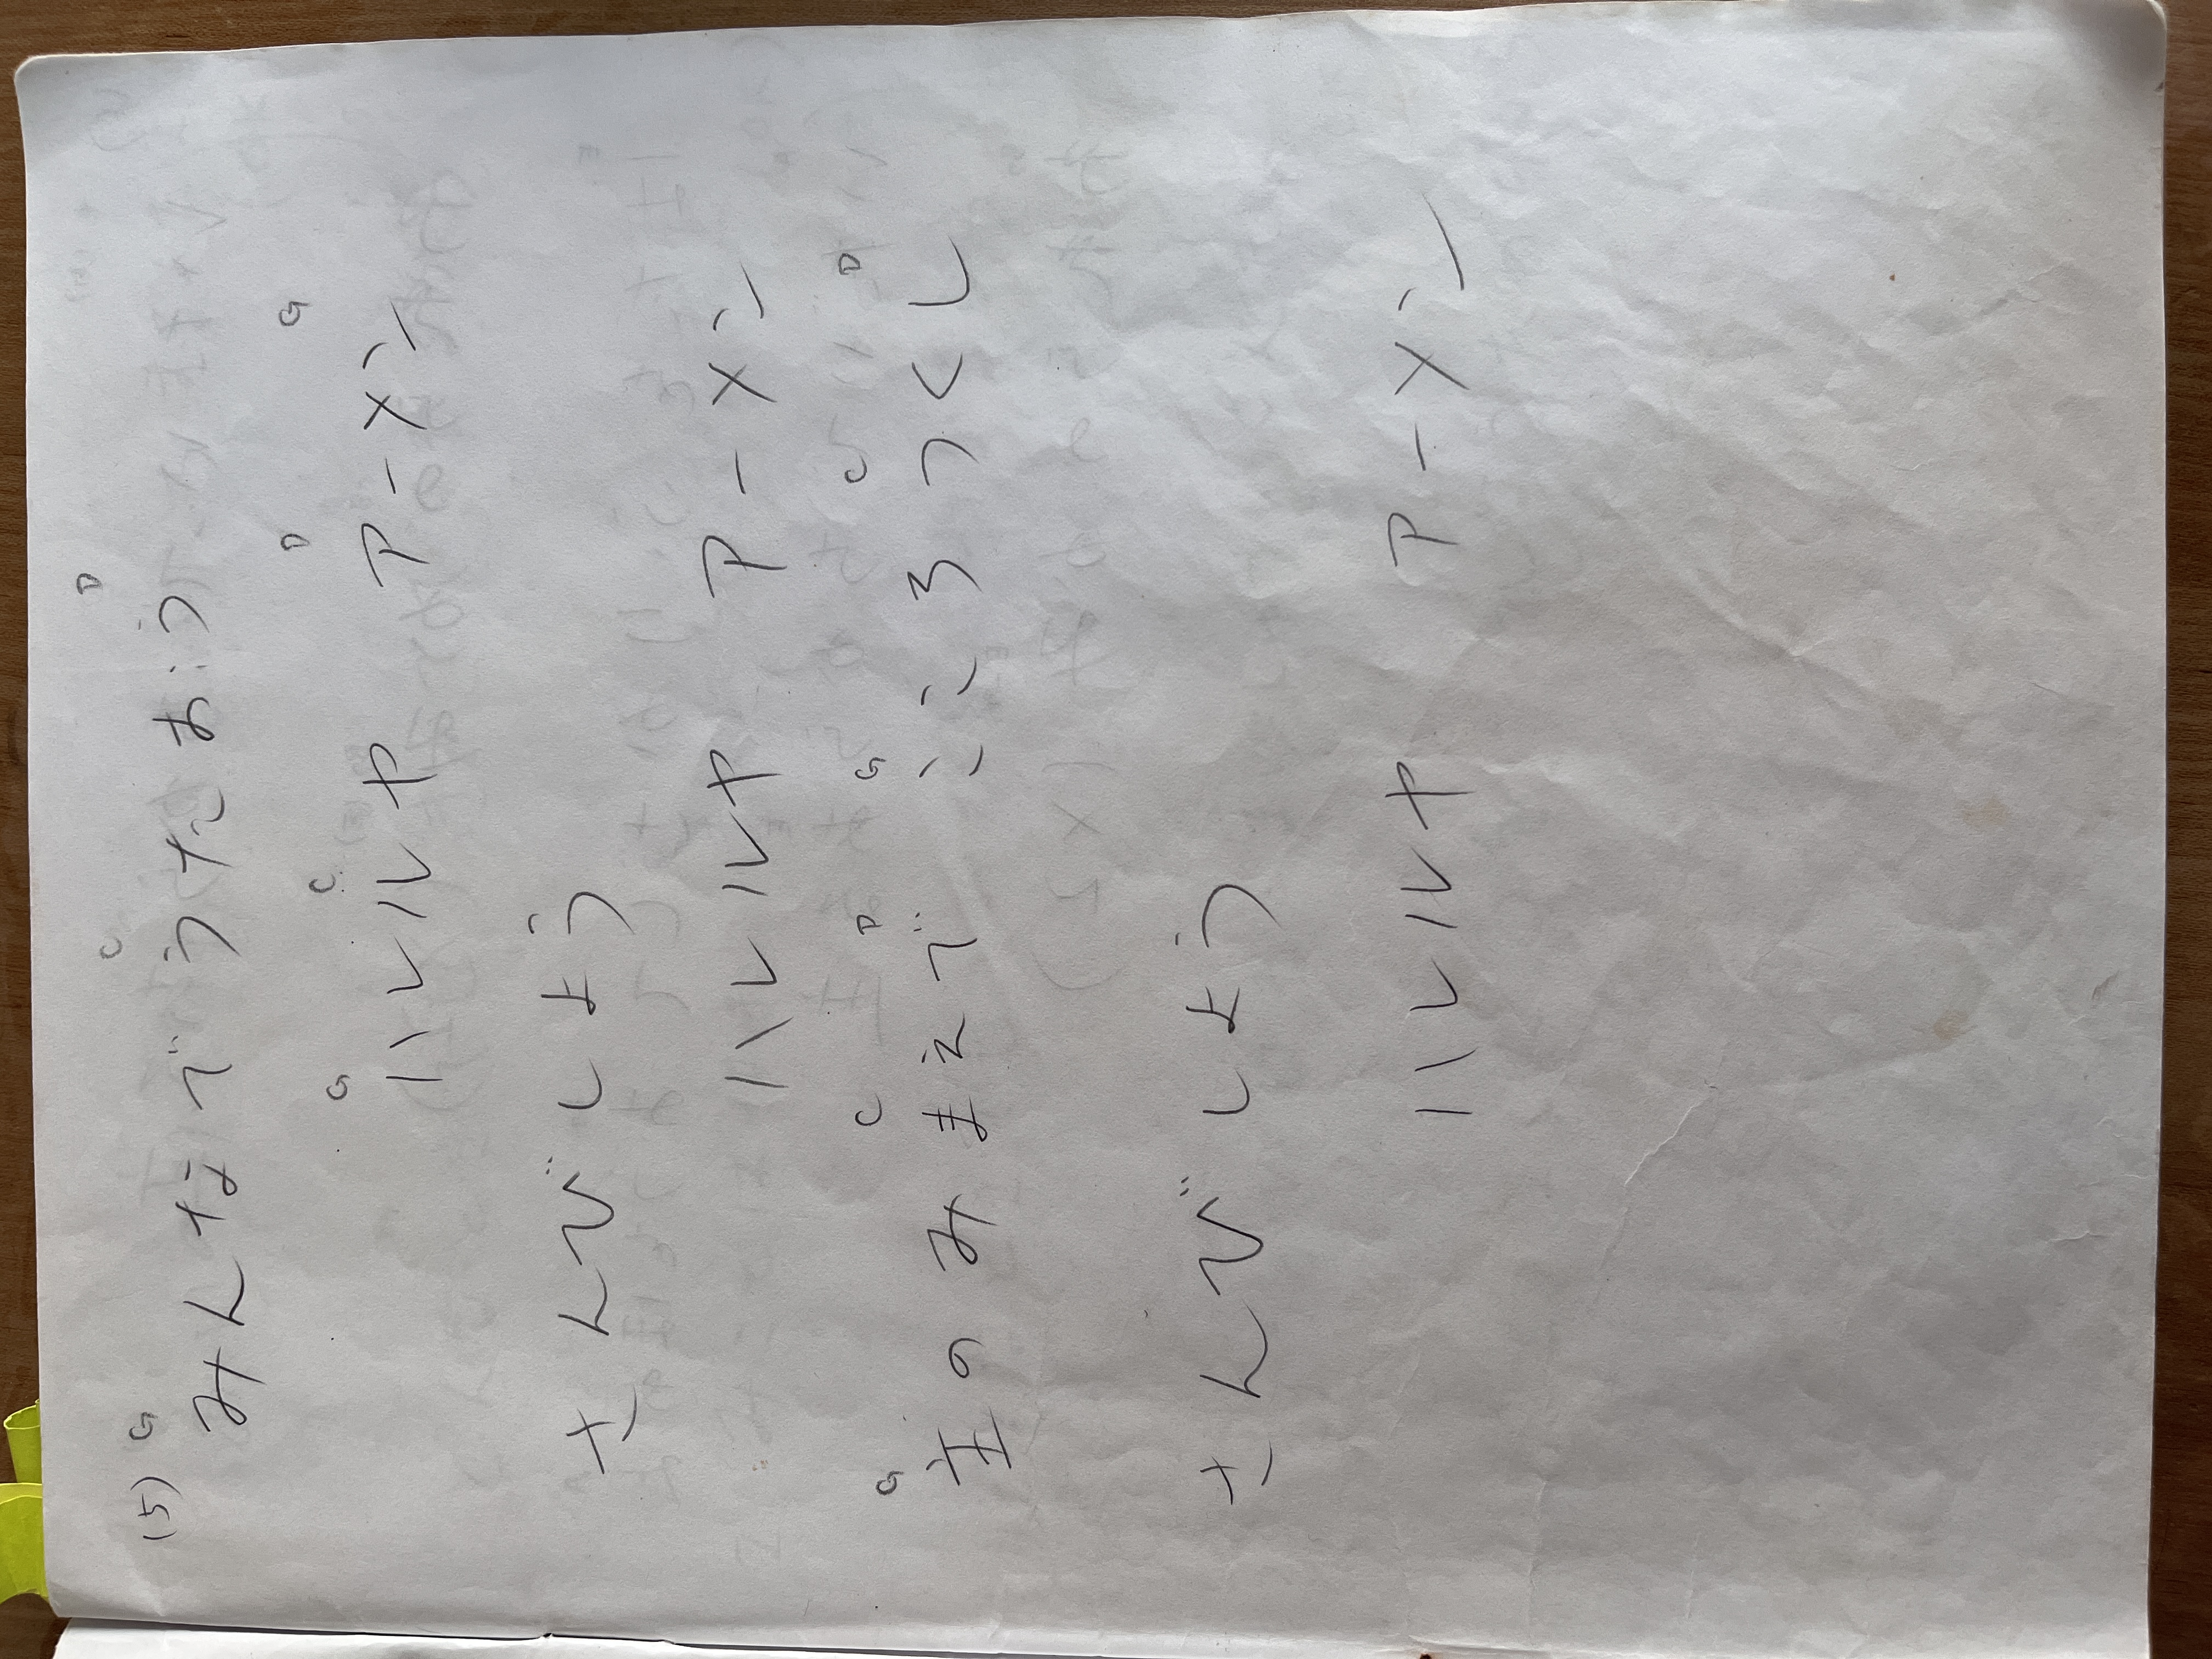 G C D
(5) みんなで うたおう
G C D G
ハレルヤ アーメン
さんびしよう
ハレルヤ アーメン
G C D G C D
主のみまえで こころつくし
さんびしよう
ハレルヤ アーメン